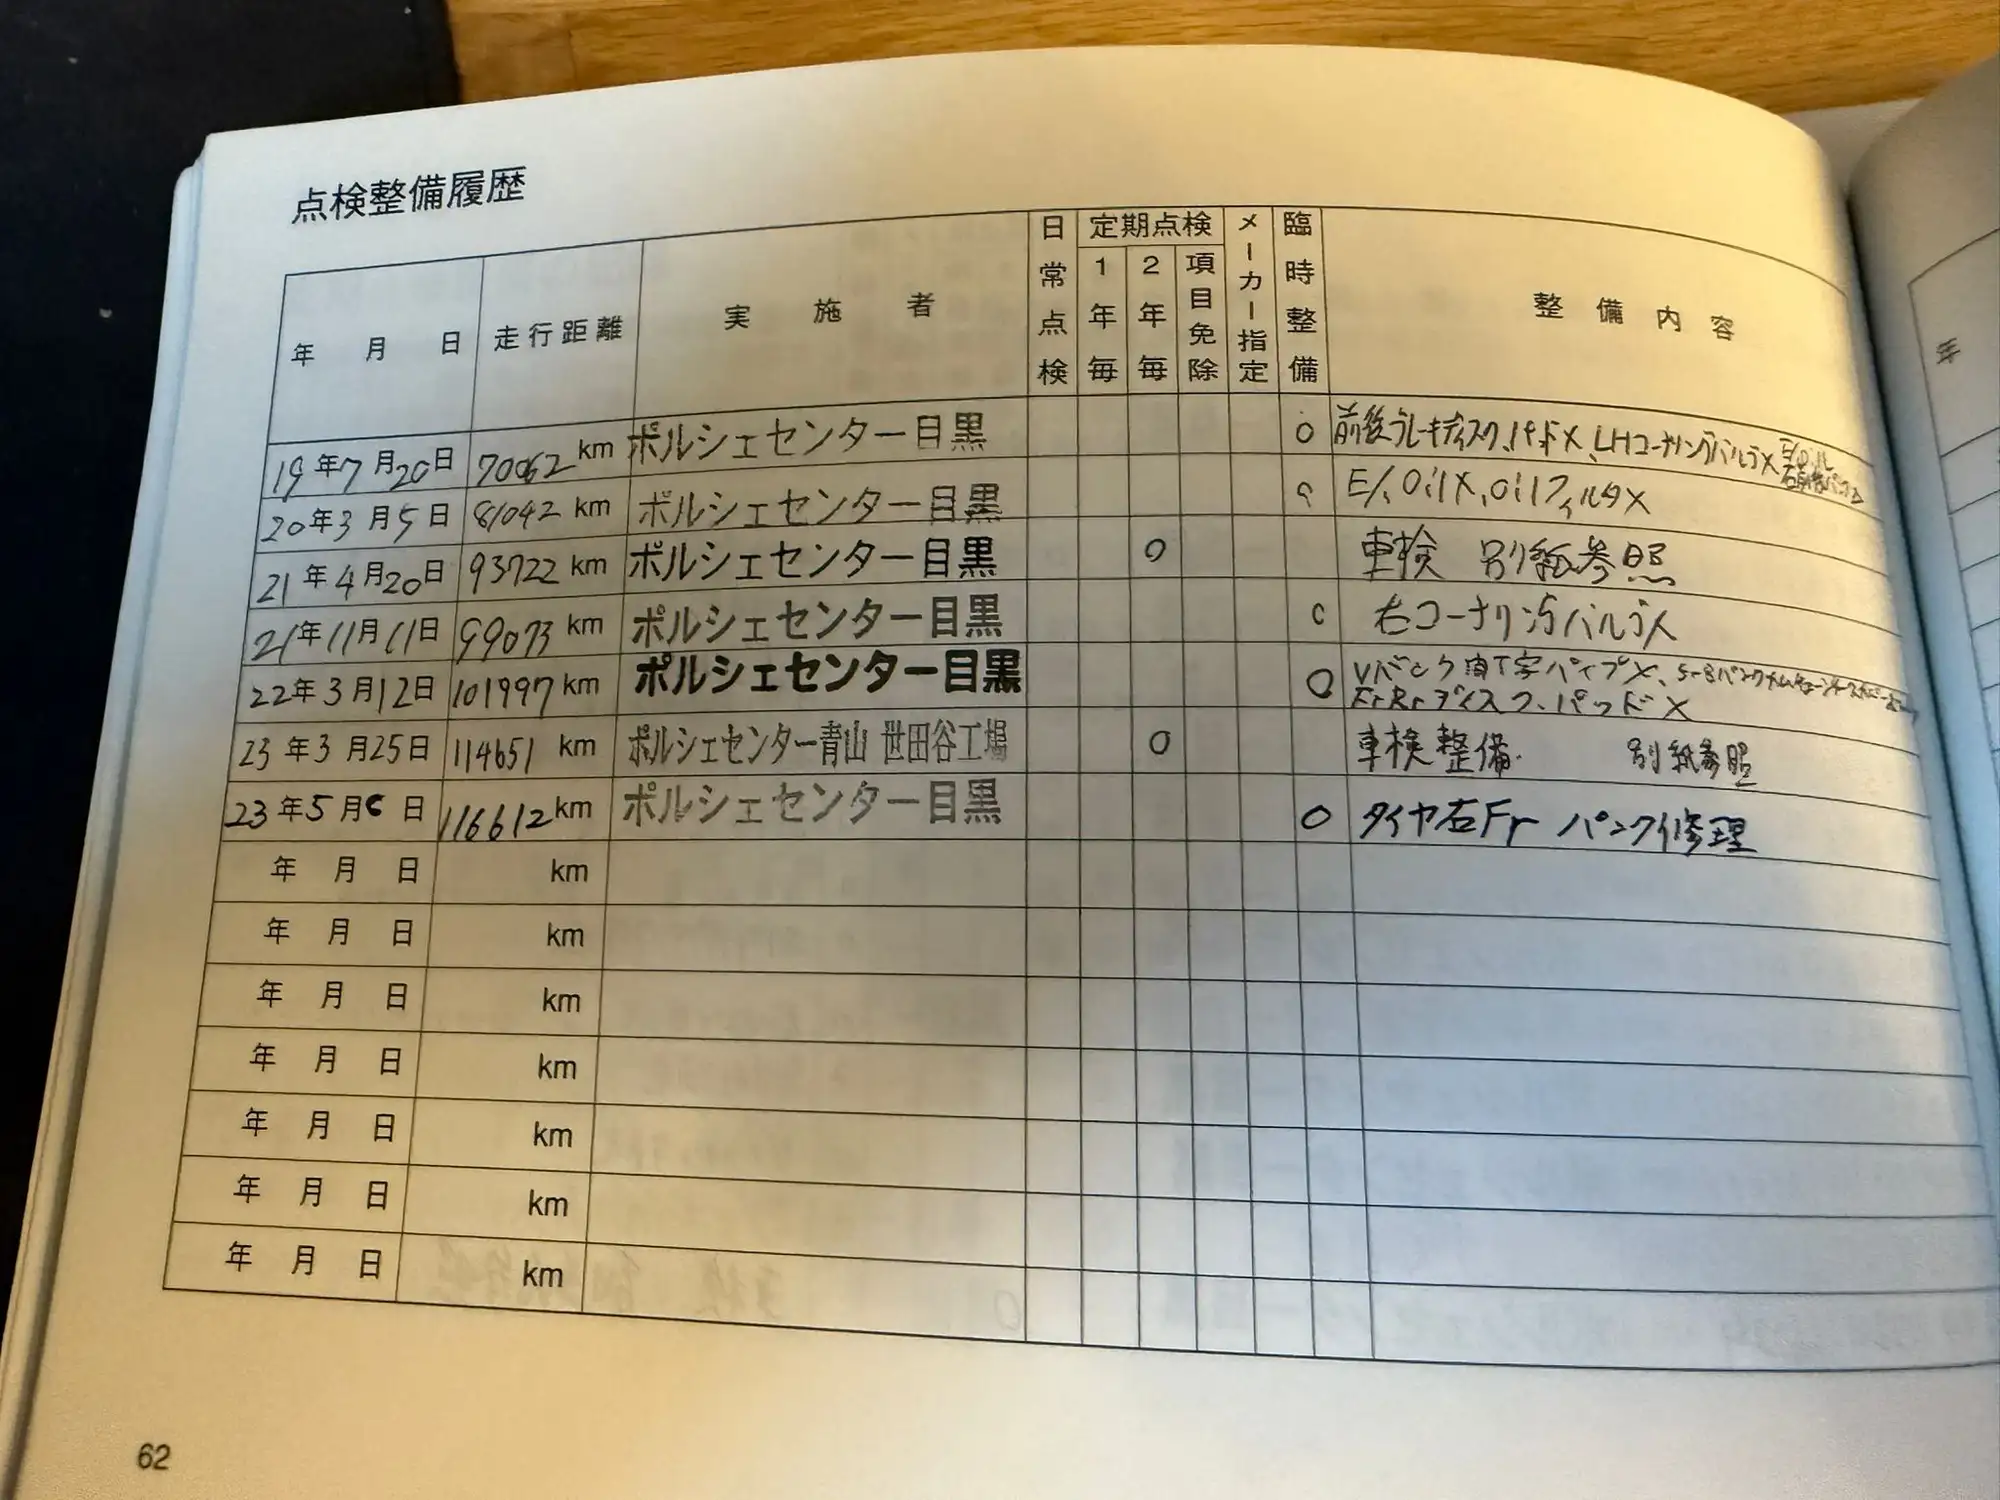 点検整備履歴
年 月 日 走行距離 実施者 日常点検 定期点検 1年毎 2年毎 項目免除 メーカー指定 臨時整備 整備内容
19年7月20日 70062km ポルシェセンター目黒 ○ 前後ブレーキディスク、パッドX、LHコーナリングバルブX
20年3月5日 81042km ポルシェセンター目黒 ○ E/Oil X, Oilフィルタ X
21年4月20日 93722km ポルシェセンター目黒 ○ 車検 別紙参照
21年11月11日 99073km ポルシェセンター目黒 ○ 右コーナリングバルブ
22年3月12日 101997km ポルシェセンター目黒 ○ Vバンク内T字パイプX、
Fr Rrディスク、パッドX
23年3月25日 114651km ポルシェセンター青山 世田谷工場 ○ 車検整備. 別紙参照
23年5月6日 116612km ポルシェセンター目黒 ○ タイヤ右Fr パンク修理
年 月 日 km
年 月 日 km
年 月 日 km
年 月 日 km
年 月 日 km
年 月 日 km
年 月 日 km
62
年